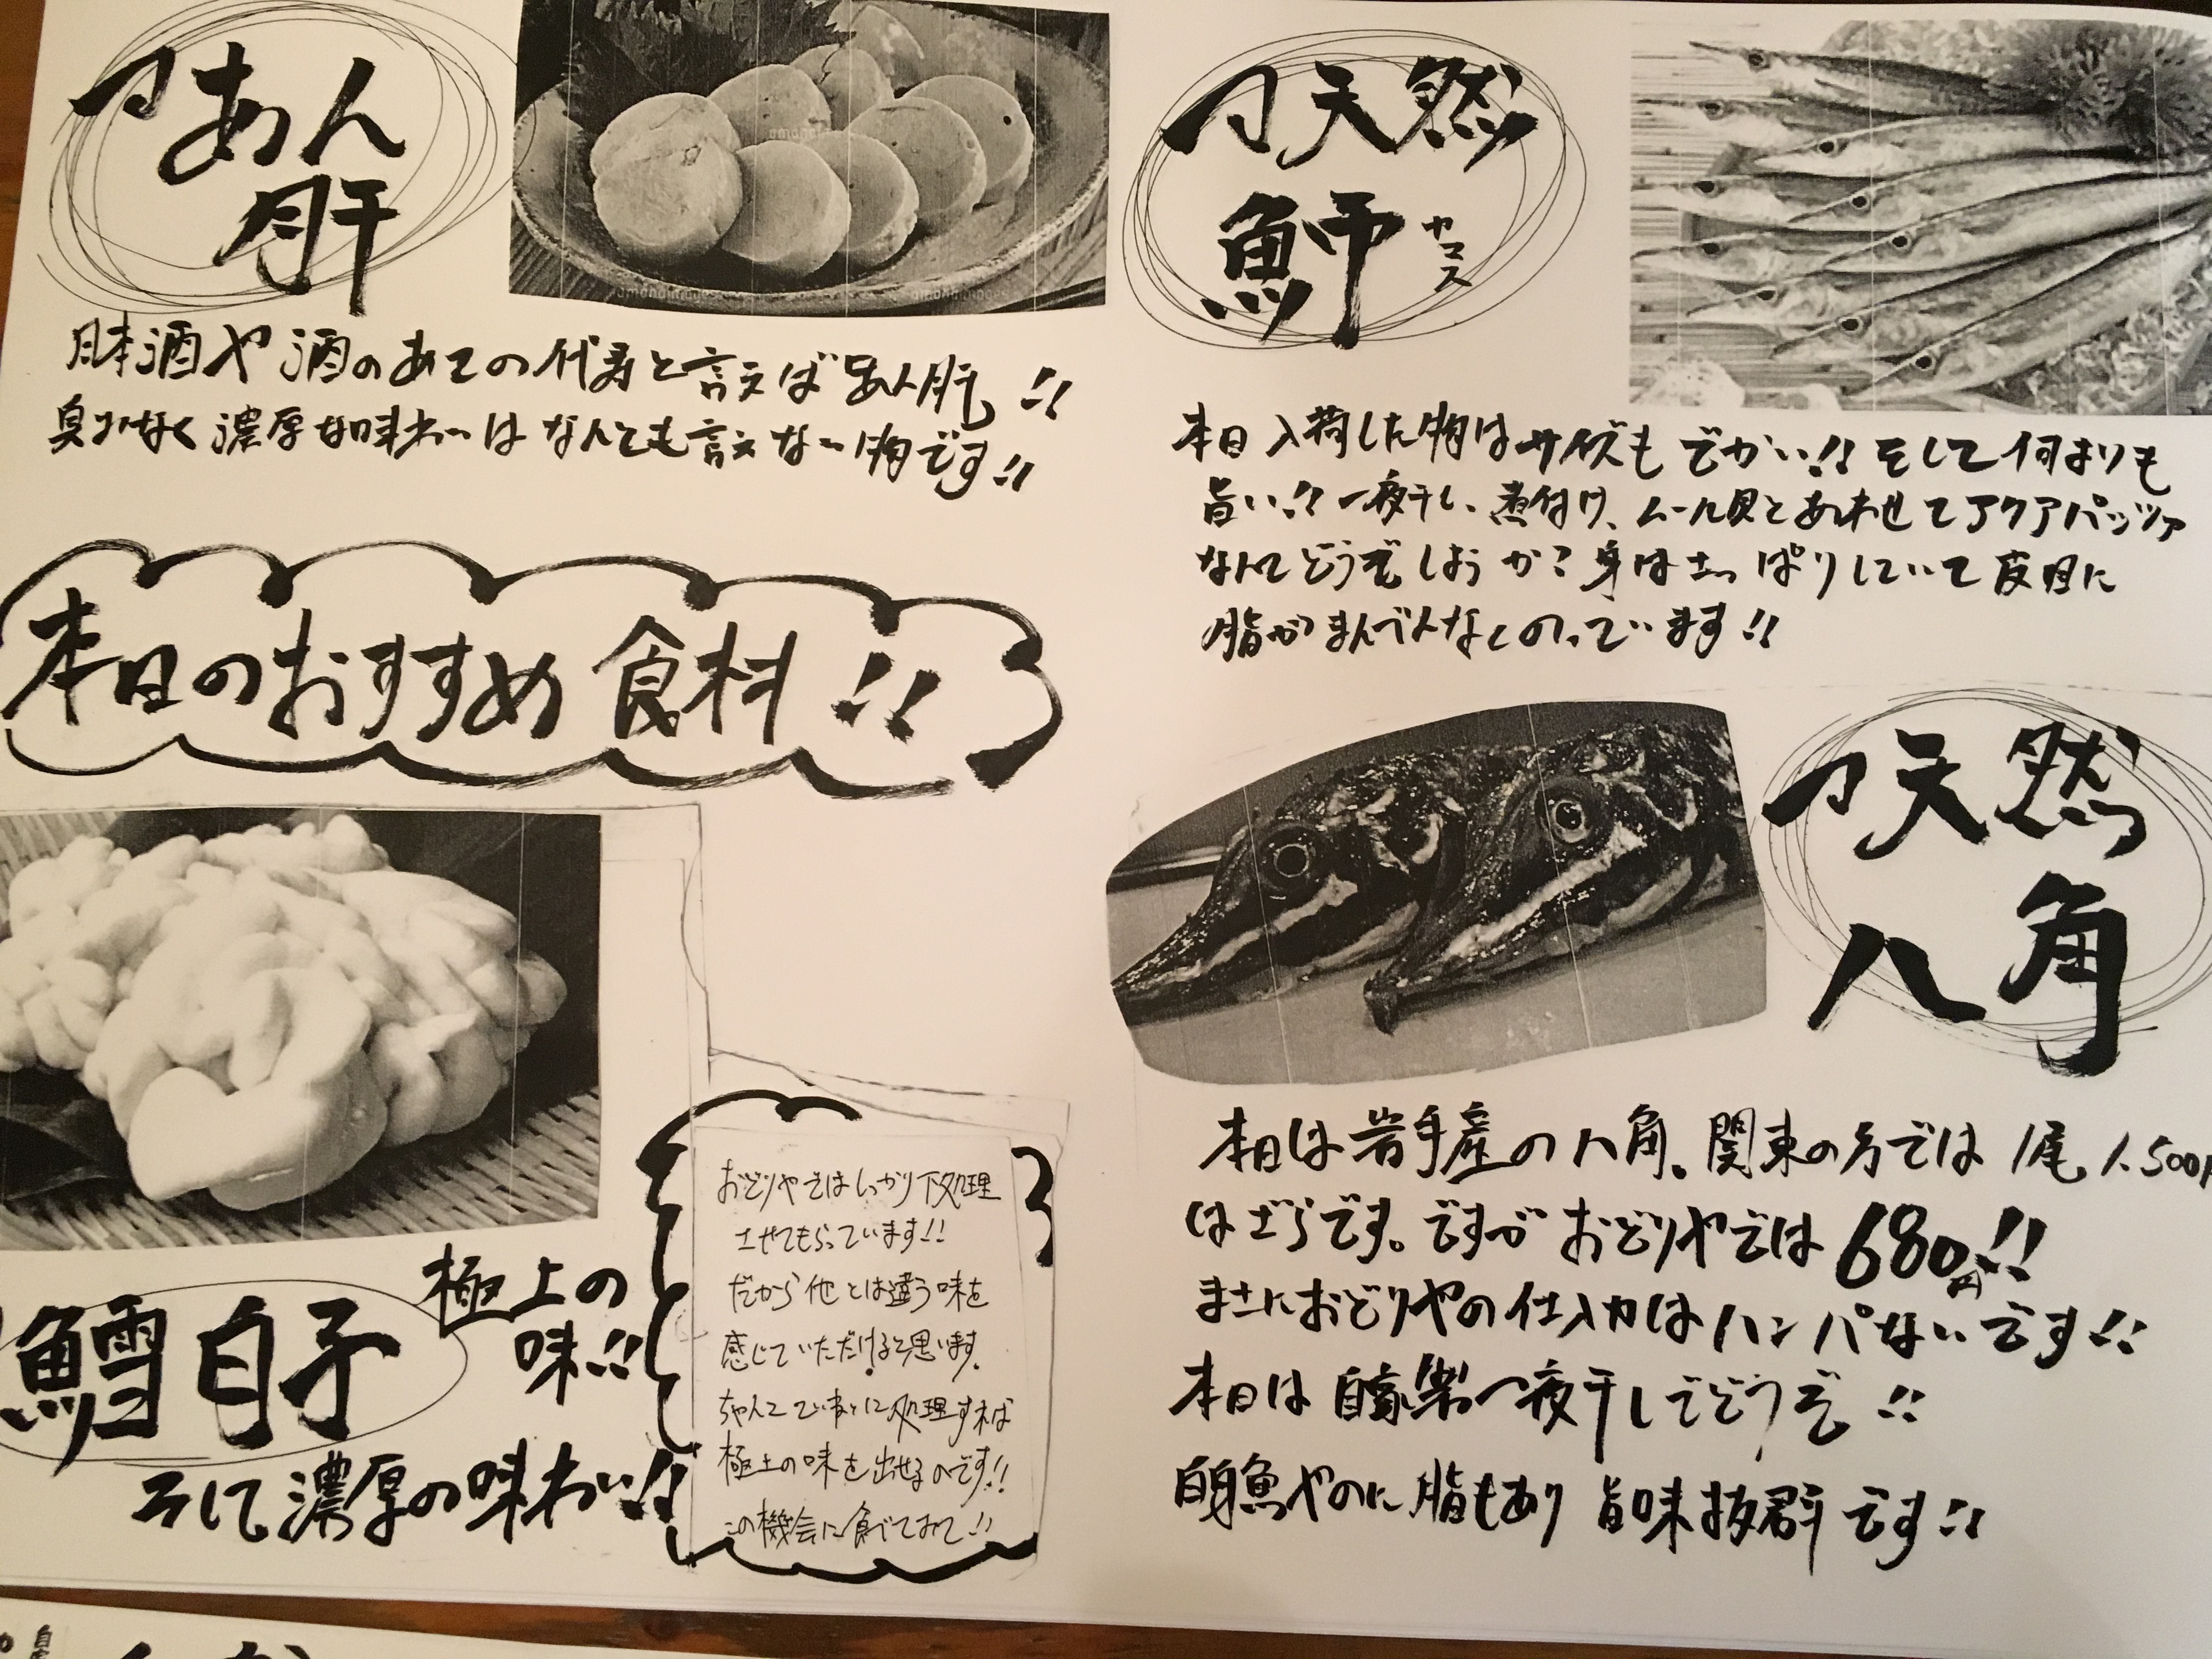 あん
肝
日本酒や酒のあての代表と言えばあん肝!!
臭みなく濃厚な味わいはなんとも言えない物です!!
本日のおすすめ食料!!
極上の
味!!
鱈白子
そして濃厚の味わい!!
おどりやではしっかり下処理
させてもらっています!!
だから他とは違う味を
感じていただけると思います。
ちゃんとていねいに処理すれば
極上の味を出せるのです!!
この機会に食べてみて!!
天然
カマス
本日入荷した物はサイズもでかい!!そして何よりも
旨い!!一夜干し、煮付け、ムール貝とあわせてアクアパッツァ
なんてどうでしょうか?身はさっぱりしていて皮目に
脂がまんべんなくのっています!!
天然
八角
本日は岩手産の八角。関東の方では1尾1,500
はざらです。ですがおどりやでは680円!!
まさにおどりやの仕入力はハンパないです!!
本日は自家製一夜干しでどうぞ!!
白身魚やのに脂もあり旨味抜群です!!
amanaimages